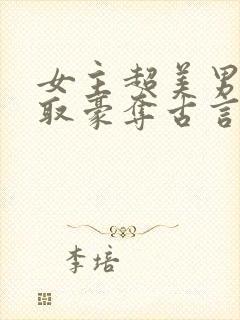 女主超美男
取豪夺古言
李培